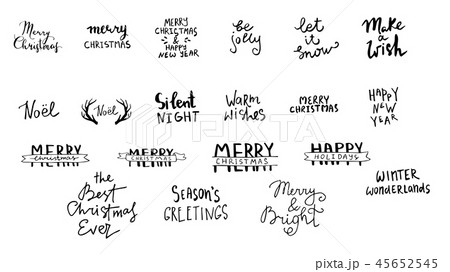 Merry
Christmas
merry
CHRISTMAS
MERRY
CHRISTMAS
&
HAPPY
NEW YEAR
be
jolly
let
it
snow
Make
a
Wish
Noël
Noël
Silent
NIGHT
Warm
Wishes
MERRY
CHRISTMAS
HAPPY
NEW
YEAR
MERRY
Christmas
MERRY
CHRISTMAS
MERRY
CHRISTMAS
HAPPY
HOLIDAYS
the
Best
Christmas
Ever
SEASON'S
GREETINGS
Merry
&
Bright
WINTER
wonderlands
PIXTA
pixta.jp - 45652545